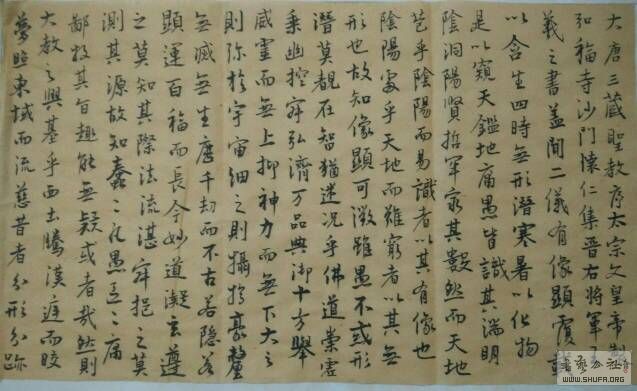 大唐三藏聖教序太宗文皇帝製
弘福寺沙門懷仁集晉右將軍王
羲之書蓋聞二儀有像顯覆載
以含生四時無形潛寒暑以化物
是以窺天鑑地庸愚皆識其端明
陰洞陽賢哲罕窮其數然而天地
苞乎陰陽而易識者以其有像也
陰陽處乎天地而難窮者以其無
形也故知像顯可徵雖愚不惑形
潛莫覩在智猶迷況乎佛道崇虛
乘幽控寂弘濟万品典御十方舉
威靈而無上抑神力而無下大之
則彌於宇宙細之則攝於豪釐
無滅無生歷千劫而不古若隱若
顯運百福而長今妙道凝玄遵
之莫知其際法流湛寂挹之莫
測其源故知蠢〻凡愚區〻庸
鄙投其旨趣能無疑或者哉然則
大教之興基乎西土騰漢庭而皎
夢照東域而流慈昔者分形分跡
WWW.SHUFA.ORG